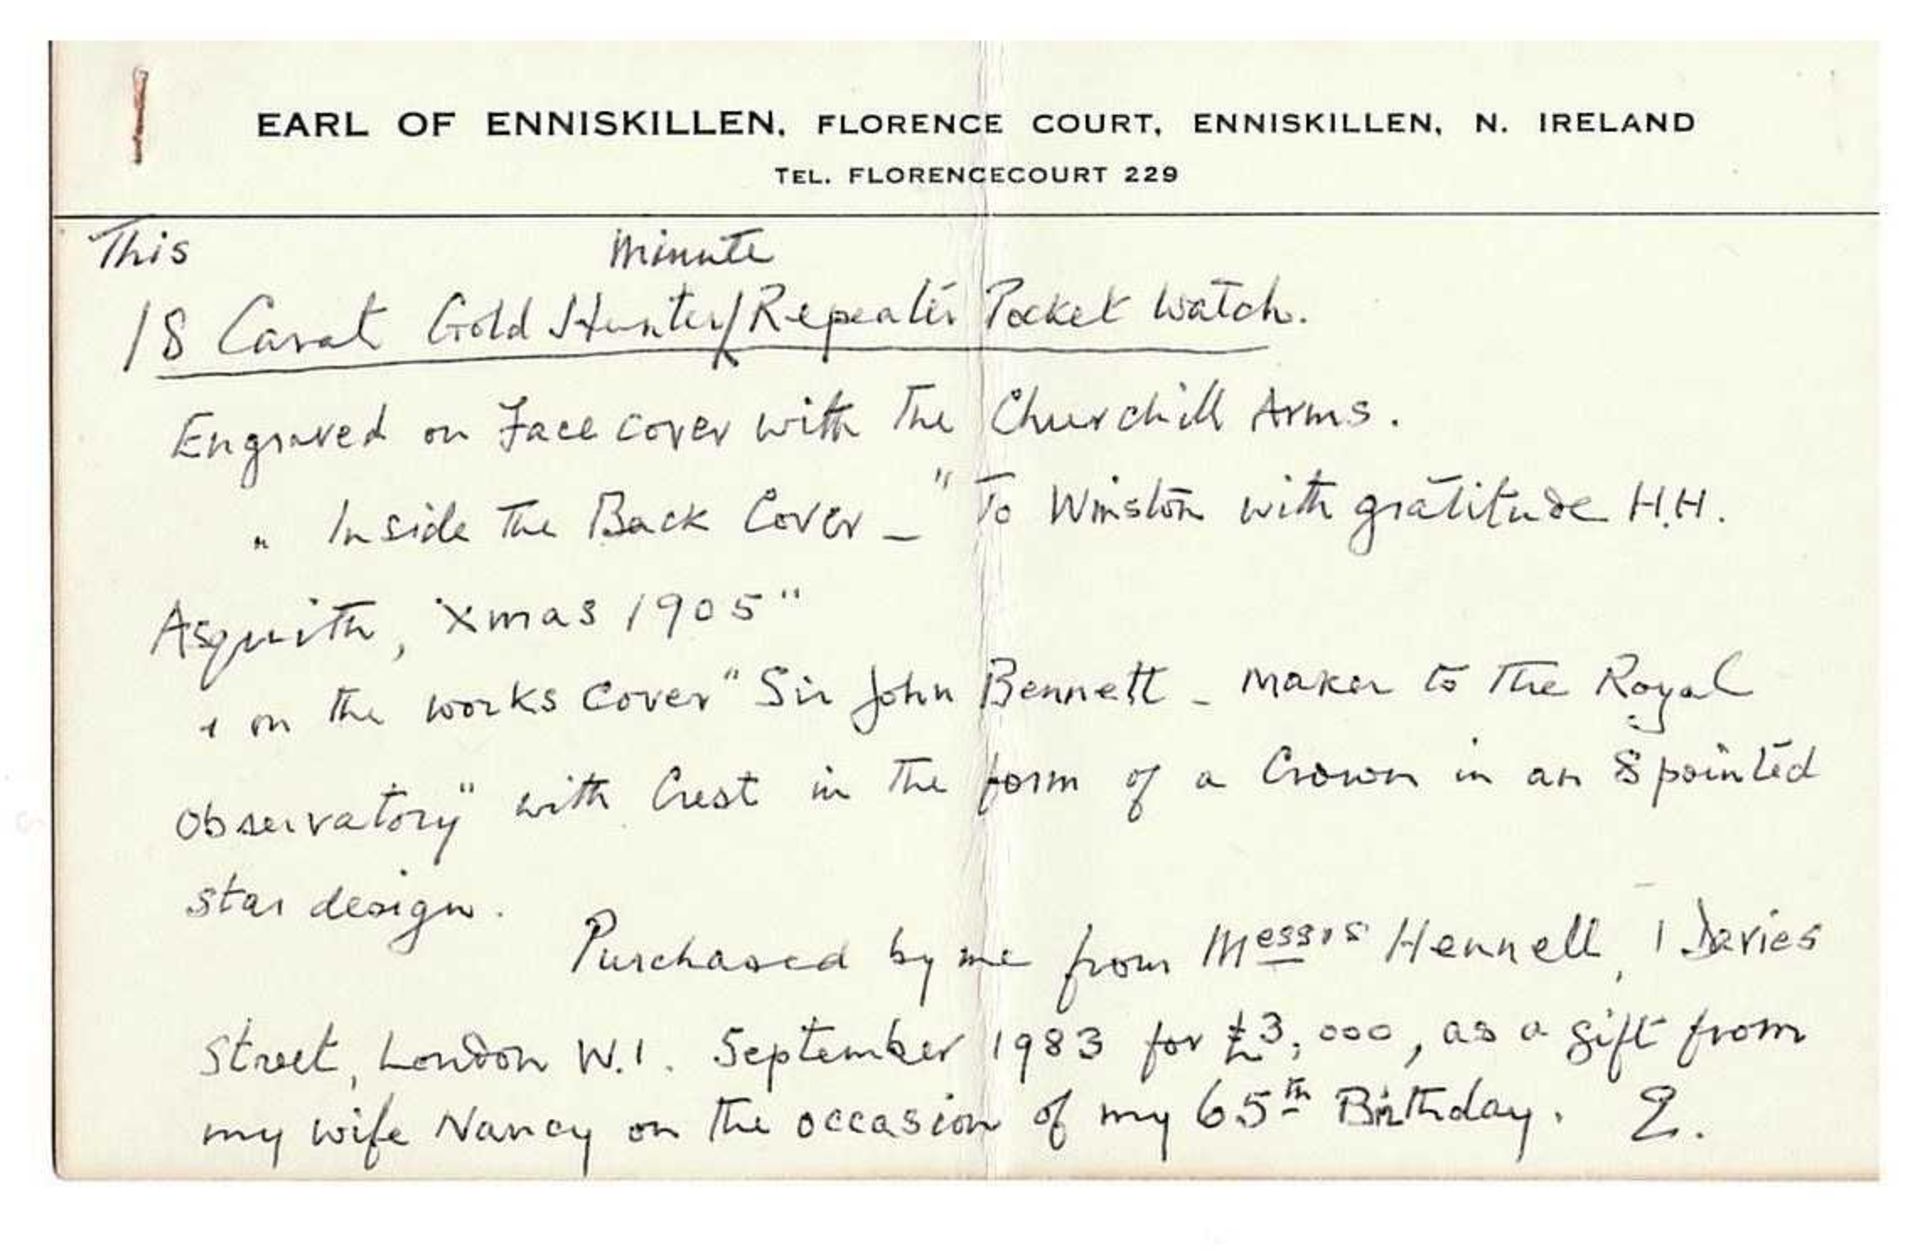 EARL OF ENNISKILLEN, FLORENCE COURT, ENNISKILLEN, N. IRELAND
TEL. FLORENCECOURT 229
This minute
18 Carat Gold Hunter/Repeater Pocket Watch.
Engraved on Face cover with the Churchill Arms.
" Inside the Back Cover – "To Winston with gratitude H.H.
Asquith, Xmas 1905"
+ on the works cover "Sir John Bennett – maker to the Royal
Observatory" with Crest in the form of a Crown in an 8 pointed
star design.
Purchased by me from Messrs Hennell, 1 Davies
Street, London W.1. September 1983 for £3,000, as a gift from
my wife Nancy on the occasion of my 65th Birthday. E.